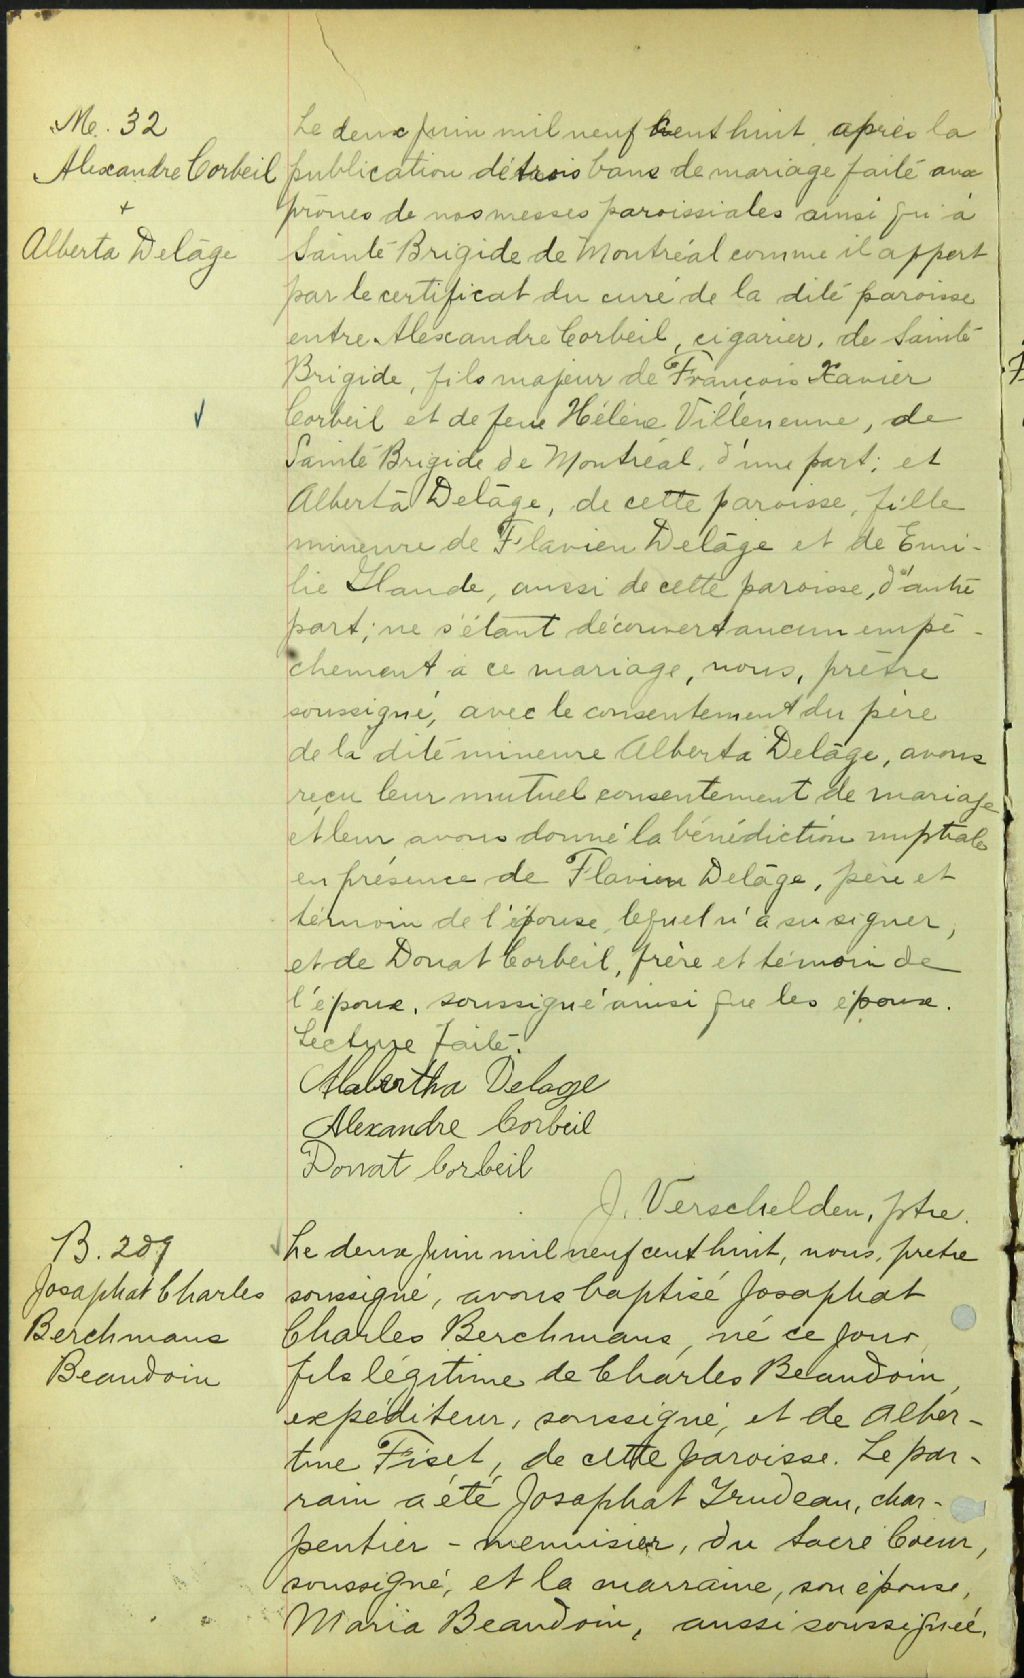 M. 32
Alexandre Corbeil
+
Alberta Delâge
Le deux juin mil neuf cent huit après la
publication de trois bans de mariage faite aux
prônes de nos messes paroissiales ainsi qu'à
Sainte Brigide de Montréal comme il appert
par le certificat du curé de la dite paroisse
entre Alexandre Corbeil, cigarier, de Sainte
Brigide, fils majeur de François Xavier
Corbeil et de feue Hélène Villeneuve, de
Sainte Brigide de Montréal, d'une part; et
Alberta Delâge, de cette paroisse, fille
mineure de Flavien Delâge et de Emi-
lie Hande, aussi de cette paroisse, d'autre
part; ne s'étant découvert aucun empê-
chement à ce mariage, nous, prêtre
soussigné, avec le consentement du père
de la dite mineure Alberta Delâge, avons
reçu leur mutuel consentement de mariage
et leur avons donné la bénédiction nuptiale
en présence de Flavien Delâge, père et
témoin de l'épouse, lequel n'a su signer,
et de Donat Corbeil, frère et témoin de
l'époux, soussigné ainsi que les époux.
Lecture faite.
Alabertha Delage
Alexandre Corbeil
Donat Corbeil
J. Verschelden, ptre.
B. 209
Josaphat Charles
Berchmans
Beaudoin
Le deux juin mil neuf cent huit, nous, prêtre
soussigné, avons baptisé Josaphat
Charles Berchmans, né ce jour,
fils légitime de Charles Beaudoin,
expéditeur, soussigné, et de Alber-
tine Fiset, de cette paroisse. Le par-
rain a été Josaphat Trudeau, char-
pentier - menuisier, du Sacré Coeur,
soussigné, et la marraine, son épouse,
Maria Beaudoin, aussi soussignée.